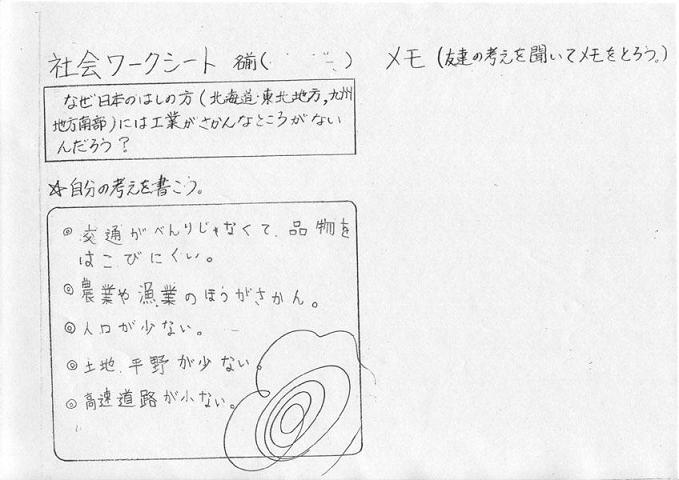 社会ワークシート 名前( )
なぜ日本のはしの方(北海道・東北地方,九州
地方南部)には工業がさかんなところがない
んだろう?
☆自分の考えを書こう。
◎交通がべんりじゃなくて、品物を
はこびにくい。
◎農業や漁業のほうがさかん。
◎人口が少ない。
◎土地、平野が少ない。
◎高速道路が小ない。
メモ(友達の考えを聞いてメモをとろう。)